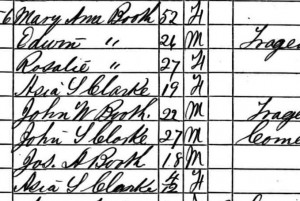 6 Mary Ann Booth 52 F
Edwin " 26 M Trage
Rosalie " 27 F
Asia S Clarke 19 F
John W Booth. 22 M Trage
John S Clarke 27 M Come
Jos. A Booth 18 M
Asia S Clarke 4/12 F